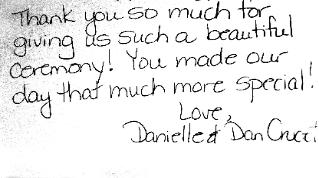 Thank you so much for
giving us such a beautiful
ceremony! You made our
day that much more special!
Love,
Danielle & Dan